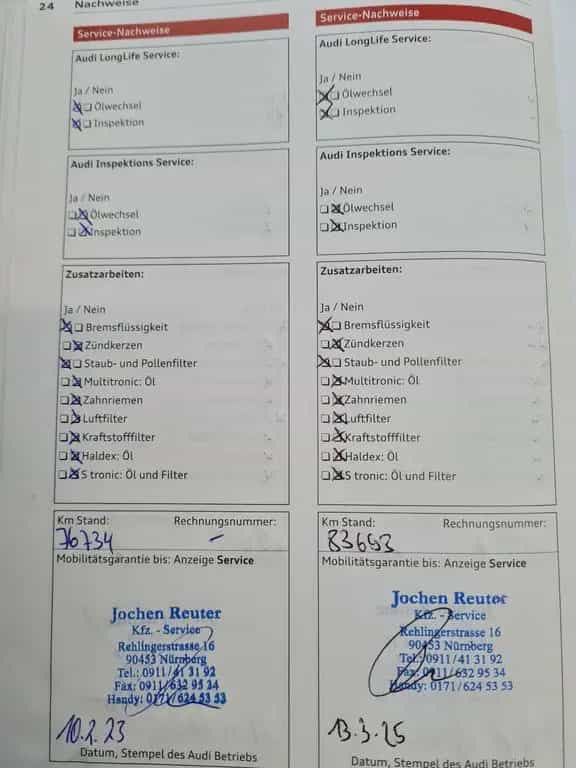 24 Nachweise
Service-Nachweise
Audi LongLife Service:
Ja / Nein
Ölwechsel
Inspektion
Audi Inspektions Service:
Ja / Nein
Ölwechsel
Inspektion
Zusatzarbeiten:
Ja / Nein
Bremsflüssigkeit
Zündkerzen
Staub- und Pollenfilter
Multitronic: Öl
Zahnriemen
Luftfilter
Kraftstofffilter
Haldex: Öl
S tronic: Öl und Filter
Km Stand: Rechnungsnummer:
76734 -
Mobilitätsgarantie bis: Anzeige Service
Jochen Reuter
Kfz. - Service
Rehlingerstrasse 16
90453 Nürnberg
Tel.: 0911/41 31 92
Fax: 0911/632 95 34
Handy: 0171/624 53 53
10.2.23
Datum, Stempel des Audi Betriebs
Service-Nachweise
Audi LongLife Service:
Ja / Nein
Ölwechsel
Inspektion
Audi Inspektions Service:
Ja / Nein
Ölwechsel
Inspektion
Zusatzarbeiten:
Ja / Nein
Bremsflüssigkeit
Zündkerzen
Staub- und Pollenfilter
Multitronic: Öl
Zahnriemen
Luftfilter
Kraftstofffilter
Haldex: Öl
S tronic: Öl und Filter
Km Stand: Rechnungsnummer:
83693
Mobilitätsgarantie bis: Anzeige Service
Jochen Reuter
Kfz. - Service
Rehlingerstrasse 16
90453 Nürnberg
Tel.: 0911/41 31 92
Fax: 0911/632 95 34
Handy: 0171/624 53 53
13.3.25
Datum, Stempel des Audi Betriebs